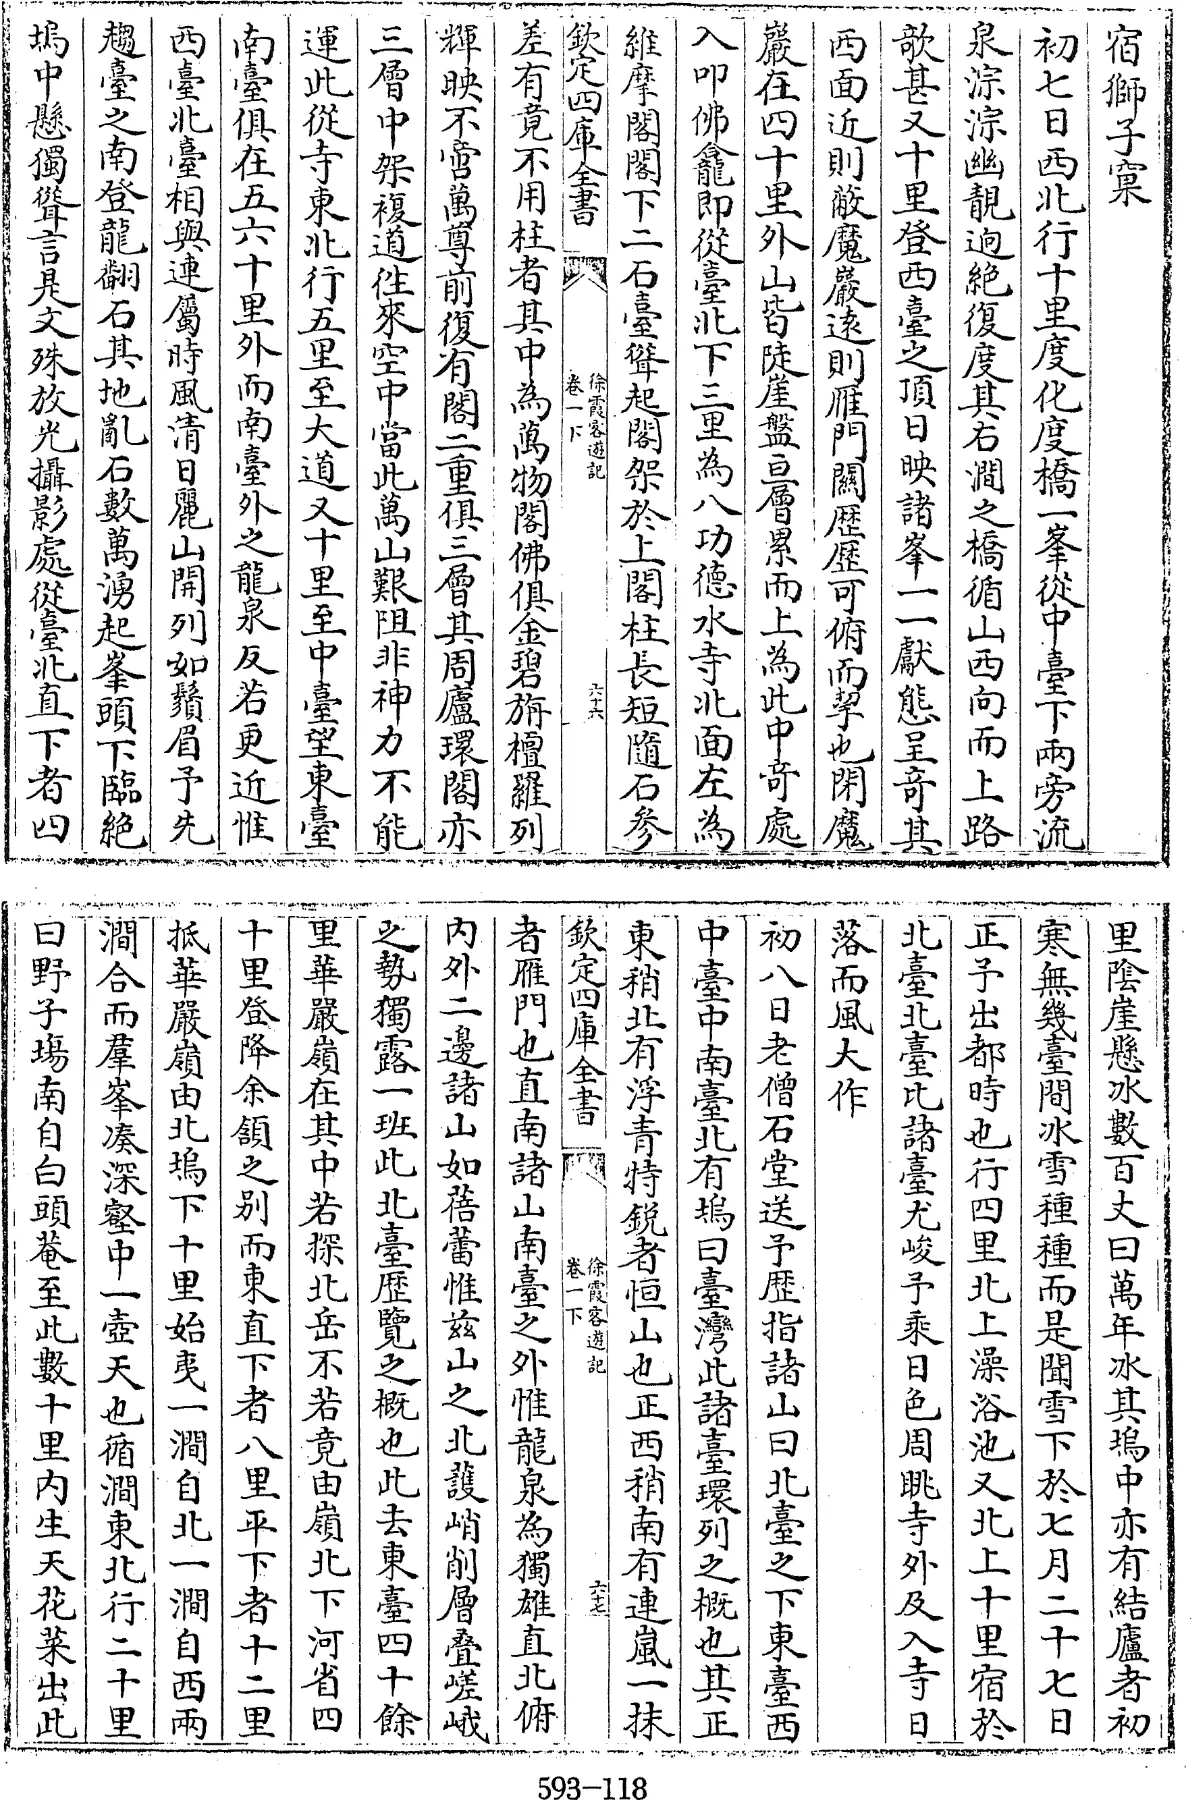 宿獅子窠
初七日西北行十里度化度橋一峯從中臺下兩旁流
泉淙淙幽靚迥絶復度其右澗之橋循山西向而上路
欹甚又十里登西臺之頂日映諸峯一一獻態呈奇其
西面近則敝魔巖遠則雁門關歴歴可俯而挈也閉魔
巖在四十里外山皆陡崖盤亘層累而上為此中奇處
入叩佛龕即從臺北下三里為八功德水寺北面左為
維摩閣閣下二石臺聳起閣架於上閣柱長短隨石參
欽定四庫全書
徐霞客遊記
卷一下
六十六
差有竟不用柱者其中為萬物閣佛俱金碧旃檀羅列
輝映不啻萬尊前復有閣二重俱三層其周廬環閣亦
三層中架複道徃來空中當此萬山艱阻非神力不能
運此從寺東北行五里至大道又十里至中臺望東臺
南臺俱在五六十里外而南臺外之龍泉反若更近惟
西臺北臺相與連屬時風清日麗山開列如鬚眉予先
趨臺之南登龍翻石其地亂石數萬湧起峯頭下臨絶
塢中懸獨聳言是文殊放光攝影處從臺北直下者四
里陰崖懸冰數百丈曰萬年冰其塢中亦有結廬者初
寒無幾臺間冰雪種種而是聞雪下於七月二十七日
正予出都時也行四里北上澡浴池又北上十里宿於
北臺北臺比諸臺尤峻予乘日色周眺寺外及入寺日
落而風大作
初八日老僧石堂送予歴指諸山曰北臺之下東臺西
中臺中南臺北有塢曰臺灣此諸臺環列之概也其正
東稍北有浮青特銳者恒山也正西稍南有連嵐一抹
欽定四庫全書
徐霞客遊記
卷一下
六十七
者雁門也直南諸山南臺之外惟龍泉為獨雄直北俯
内外二邊諸山如蓓蕾惟兹山之北護峭削層疊嵯峨
之勢獨露一班此北臺歴覽之概也此去東臺四十餘
里華嚴嶺在其中若探北岳不若竟由嶺北下可省四
十里登降余頷之别而東直下者八里平下者十二里
抵華嚴嶺由北塢下十里始夷一澗自北一澗自西兩
澗合而羣峯凑深壑中一壺天也循澗東北行二十里
曰野子塲南自白頭菴至此數十里内生天花菜出此
593-118